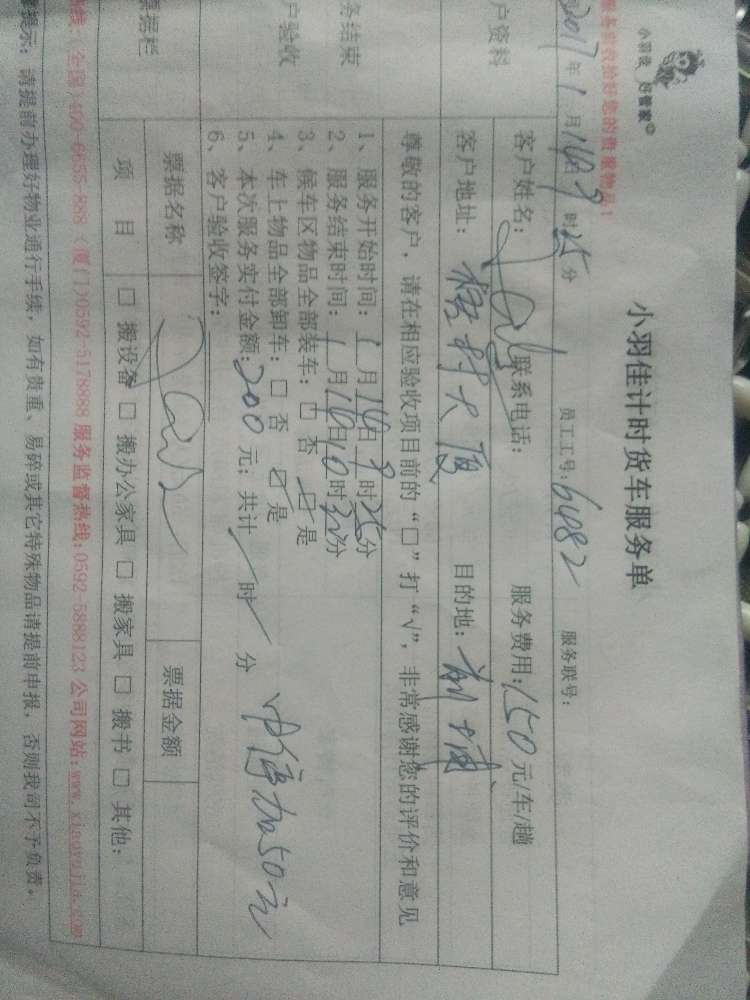 小羽佳 好管家
小羽佳计时货车服务单
服务您收拾好您的贵重物品!
2017年1月14日9时25分 员工工号:6482 服务联号:
户资料
客户姓名: 联系电话: 服务费用:150元/车/趟
客户地址: 大厦 目的地: 前埔
尊敬的客户,请在相应验收项目前的“□”打“√”,非常感谢您的评价和意见
务结束
户验收
1、服务开始时间:1月14日9时25分
2、服务结束时间:1月14日10时32分
3、候车区物品全部装车:□ 否 ☑ 是
4、车上物品全部卸车:□ 否 ☑ 是
5、本次服务实付金额:200元;共计 / 时 / 分
中停加50元
6、客户验收签字:
票据栏
票据名称 票据金额
项 目 □ 搬设备 □ 搬办公家具 □ 搬家具 □ 搬书 □ 其他:
热线:(全国)400-6655-888 (厦门)0592-5178888 服务监督热线:0592-5888123 公司网站:www.xiaoyujia.com
提示:请提前办理好物业通行手续,如有贵重、易碎或其它特殊物品请提前申报,否则我司不予负责。